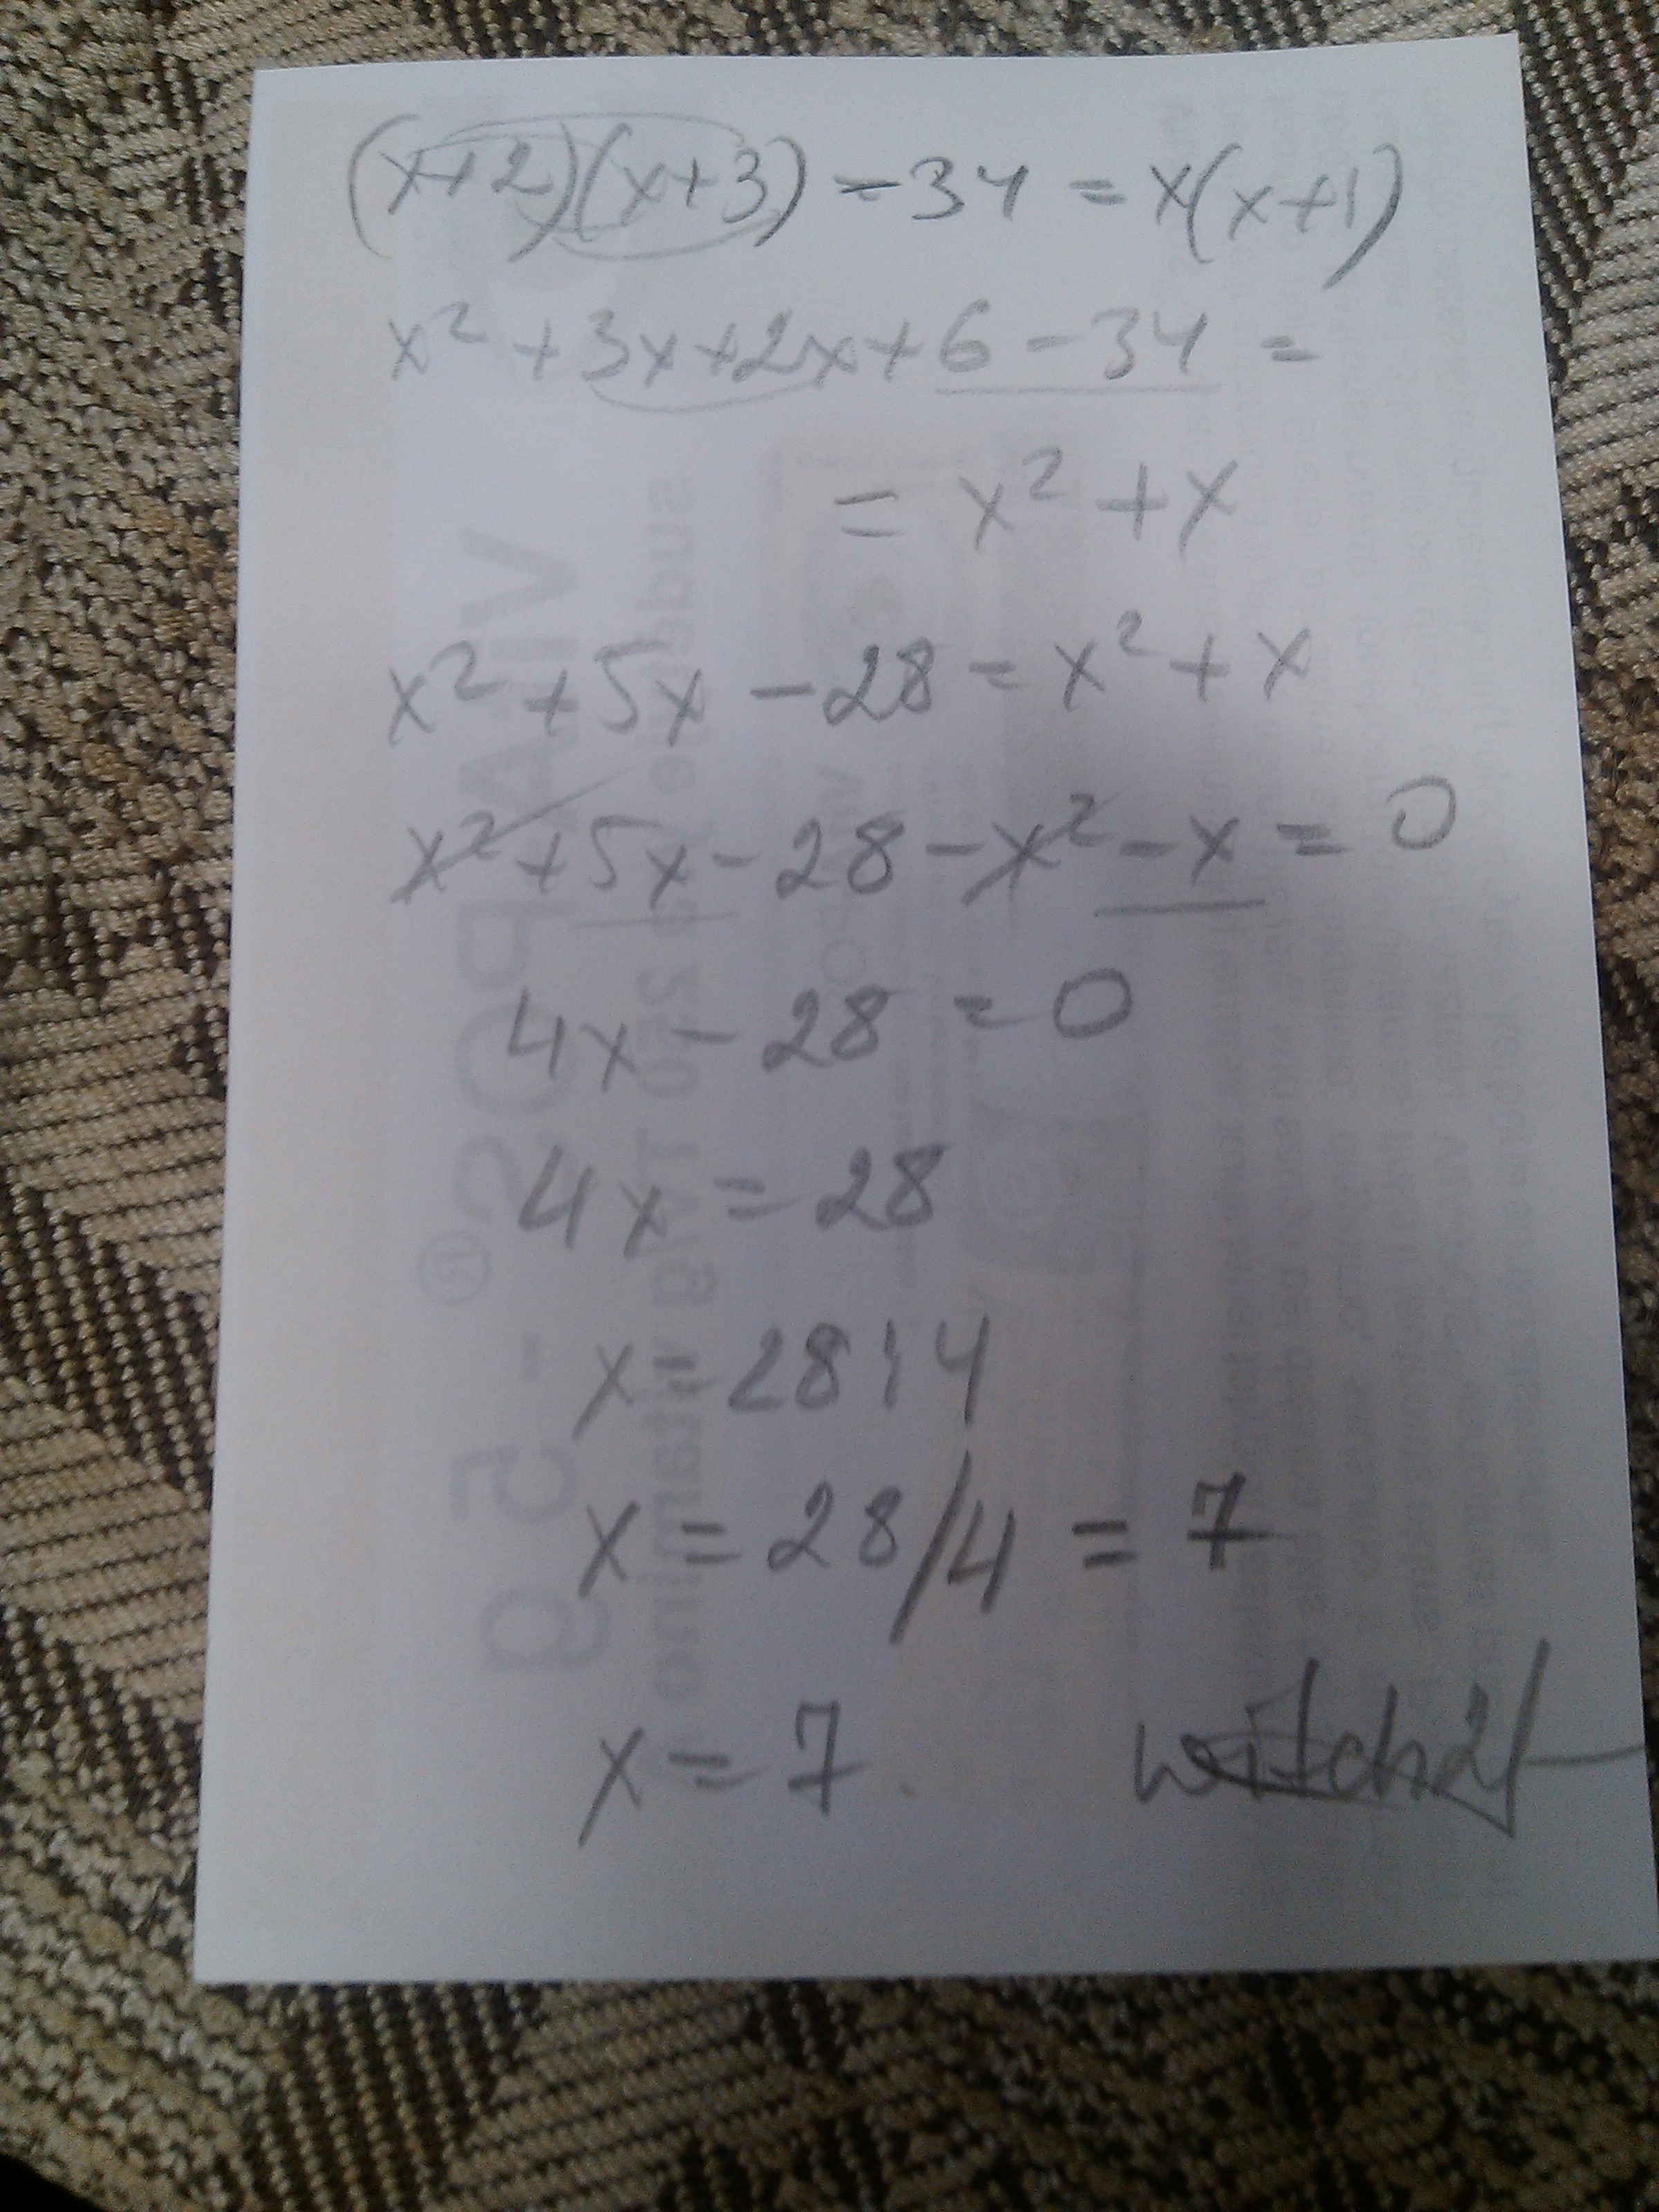 (x+2)(x+3) - 34 = x(x+1)
x² + 3x + 2x + 6 - 34 =
= x² + x
x² + 5x - 28 = x² + x
x² + 5x - 28 - x² - x = 0
4x - 28 = 0
4x = 28
x = 28 : 4
x = 28/4 = 7
x = 7.